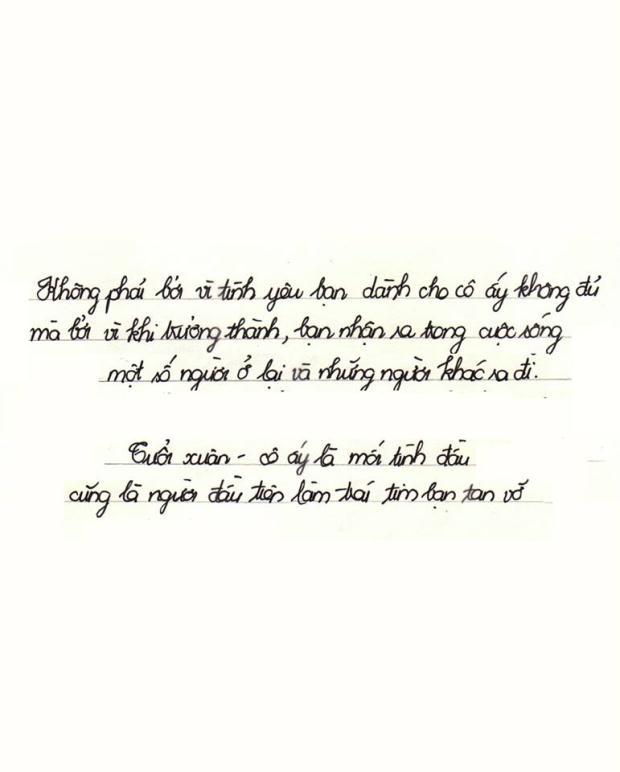 Không phải bởi vì tình yêu bạn dành cho cô ấy không đủ
mà bởi vì khi trưởng thành, bạn nhận ra trong cuộc sống
một số người ở lại và những người khác ra đi.
Tuổi xuân - cô ấy là mối tình đầu
cũng là người đầu tiên làm trái tim bạn tan vỡ